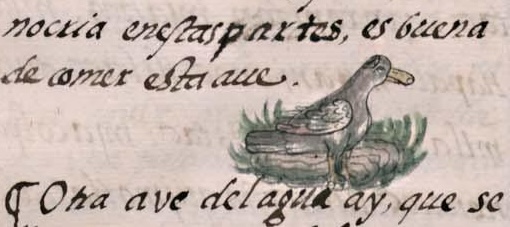 nocria enestas partes, es buena
de comer esta aue.
¶ Otra ave del agua ay, que se